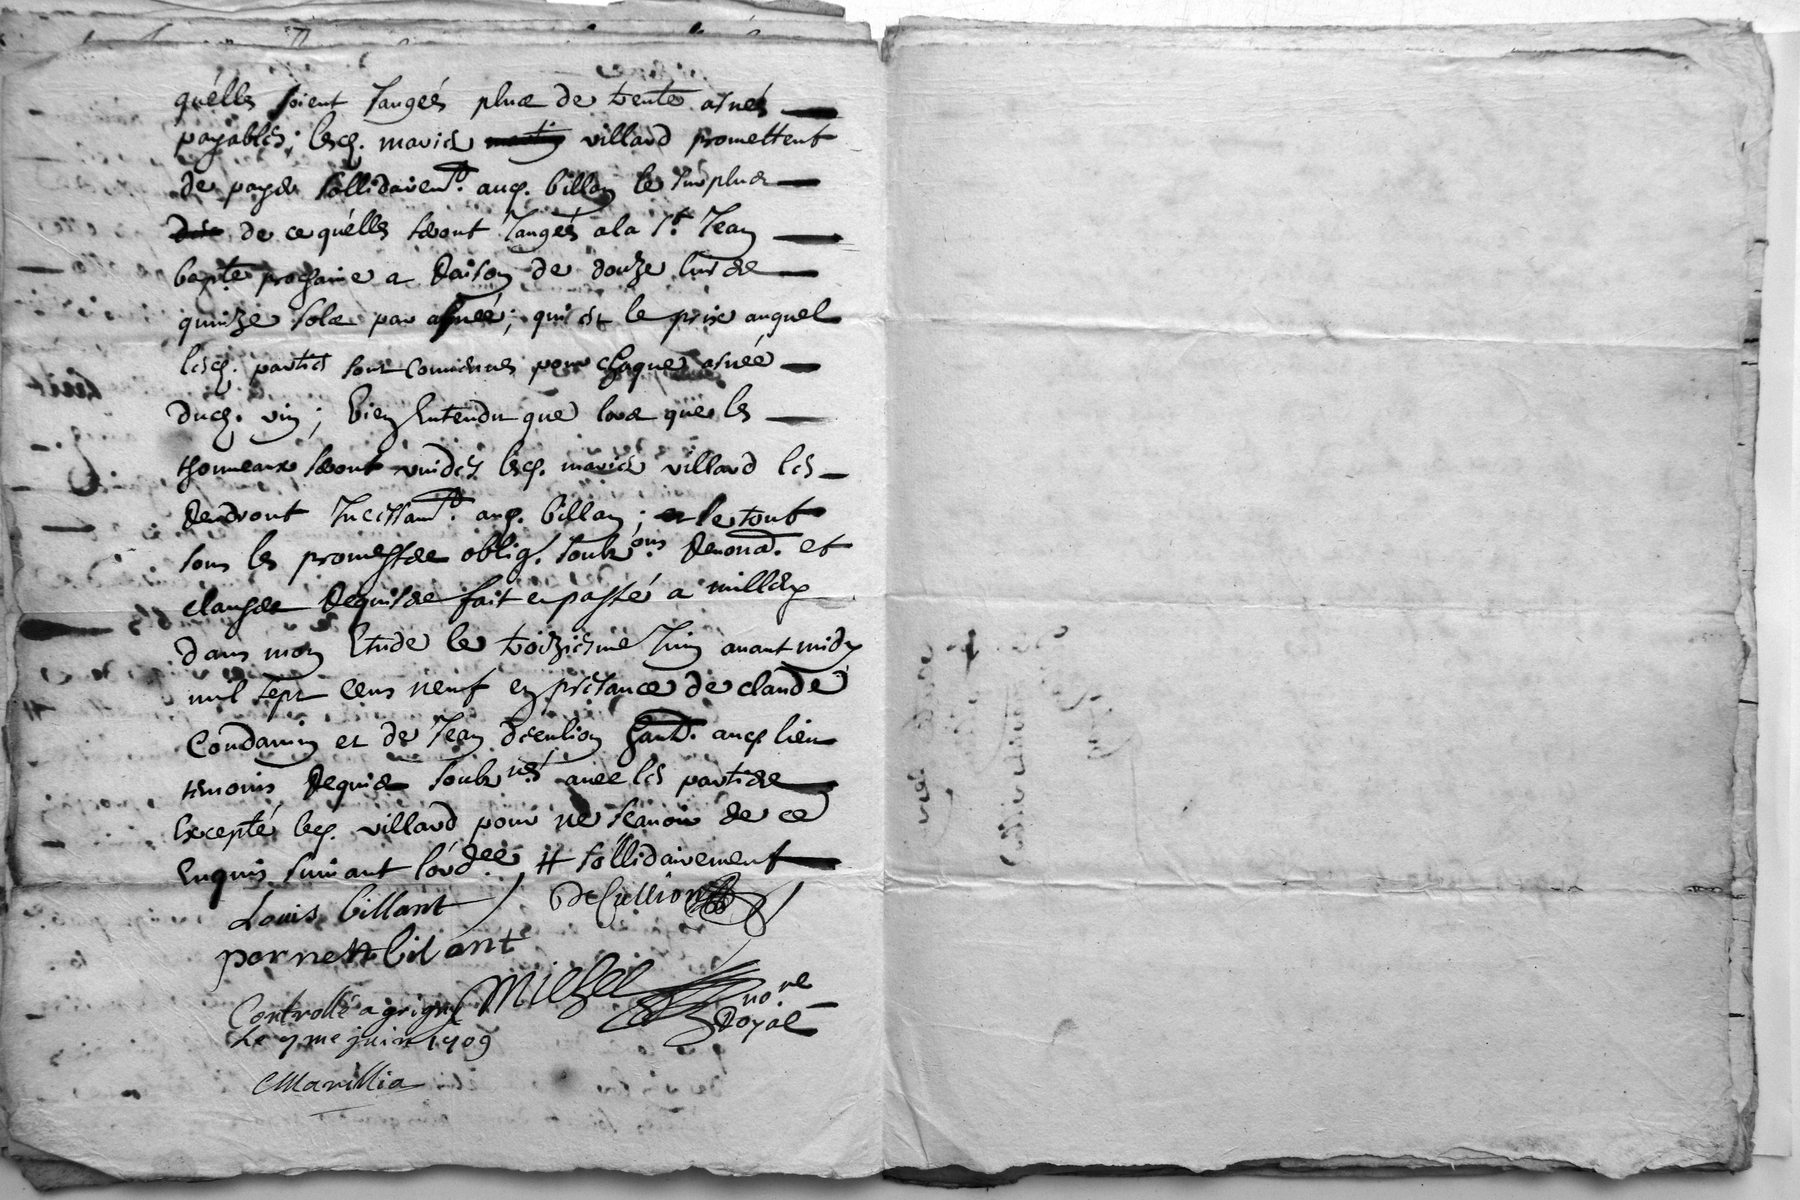 quélles soient Jaugéés plus de trente asnéés
payables; lesd. mariés villard promettent
de payer sollidairemt. aud. billan le surplus
de ce quélles seront Jaugéés a la St. Jean
bapte prochaine a Raison de douze livres
quinze sols par asnéé; qui est le prix auquel
lesd. parties sont Convenues pour chaque asnéé
dud. vin; bien Entendu que lors que les
thonneaux seront vuides lesd. mariés villard les
Rendront Incessamt. aud. billan; le tout
sous les promesses oblig. soubzons Renona. et
clauses Requises fait et passé a millery
dans mon Etude le troiziesme Juin avant midy
mil sept cens neuf en presance de claude
Condamin et de Jean decullion hant. aud. lieu
temoins Requis soubznés avec les parties
Excepté led. villard pour ne scavoir de ce
Enquis suivant lordee # sollidairement
Louis billant DeCullion
pernett bilante
Michel nore
Royal
Controllé a grigny
Le 7me juin 1709
Marillia